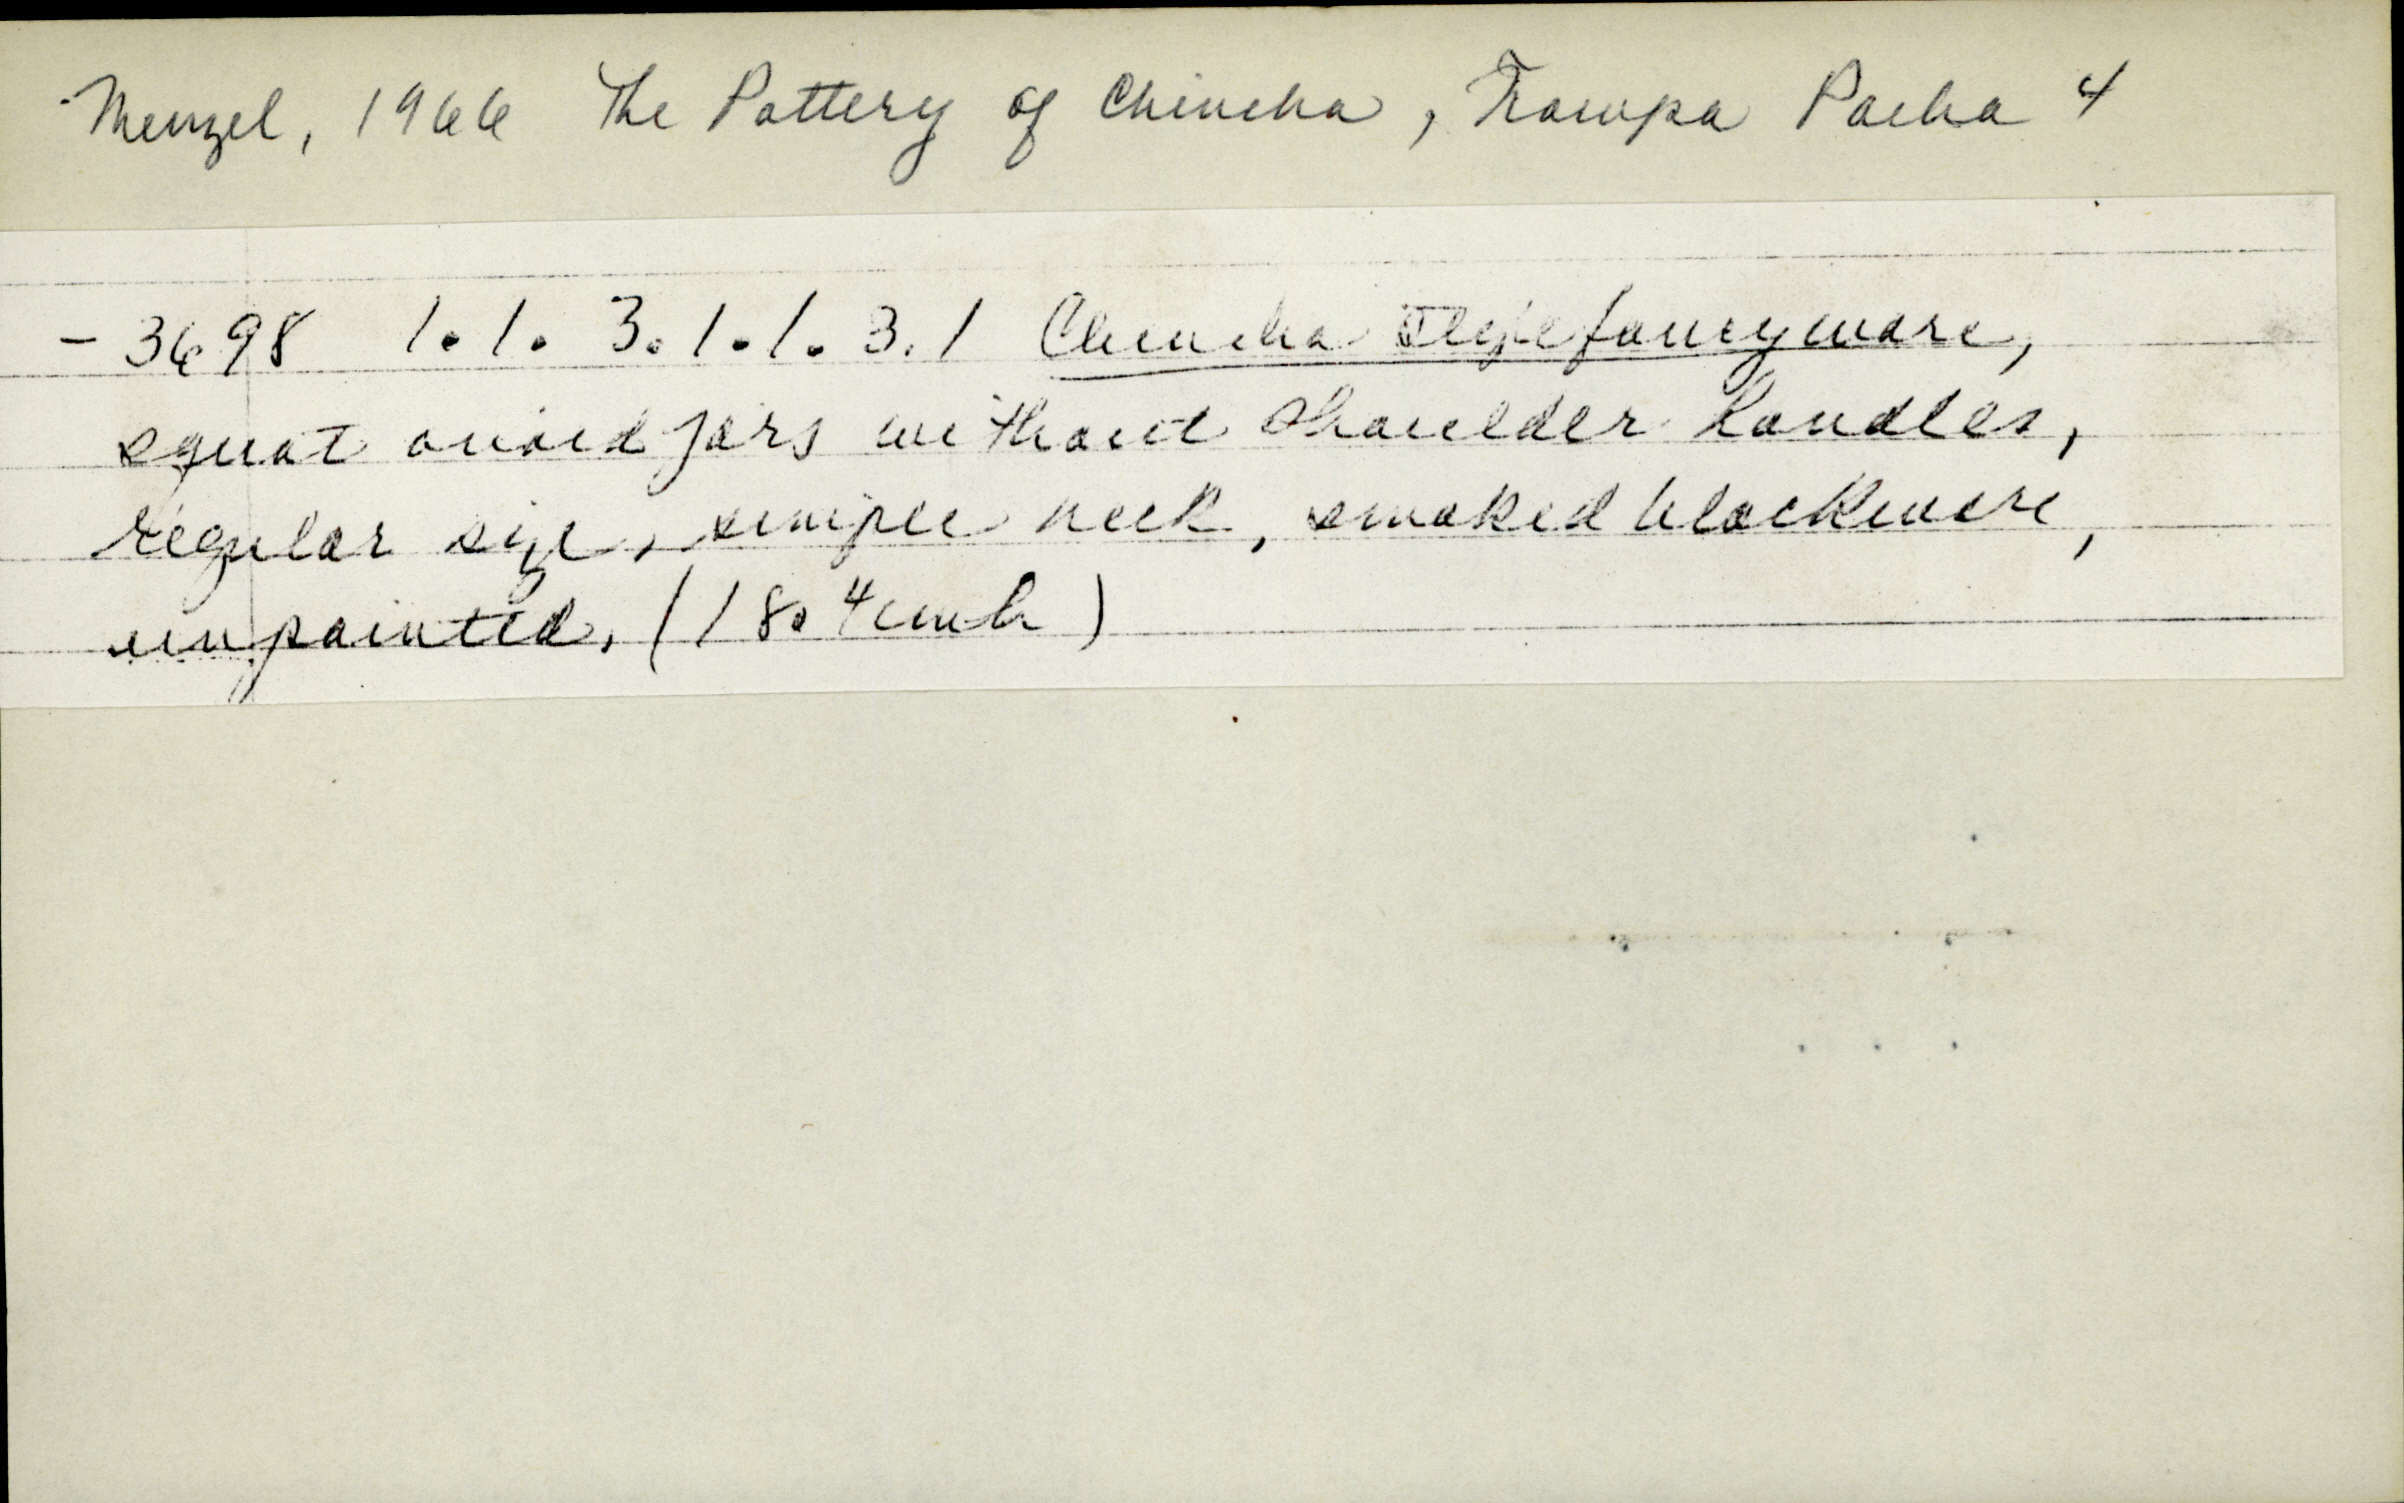 Menzel, 1966 The Pottery of Chincha, Ñawpa Pacha 4
- 3698 1.1.3.1.1.3.1 Chincha style fancyware,
squat ovoid jars without shoulder handles,
regular size, simple neck, smoked blackware,
unpainted. (18.4 cm h)